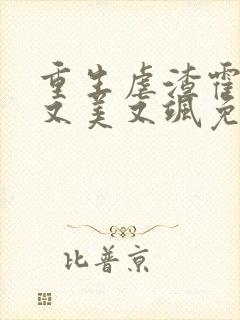 重生虐渣霍
又美又飒免
比普京